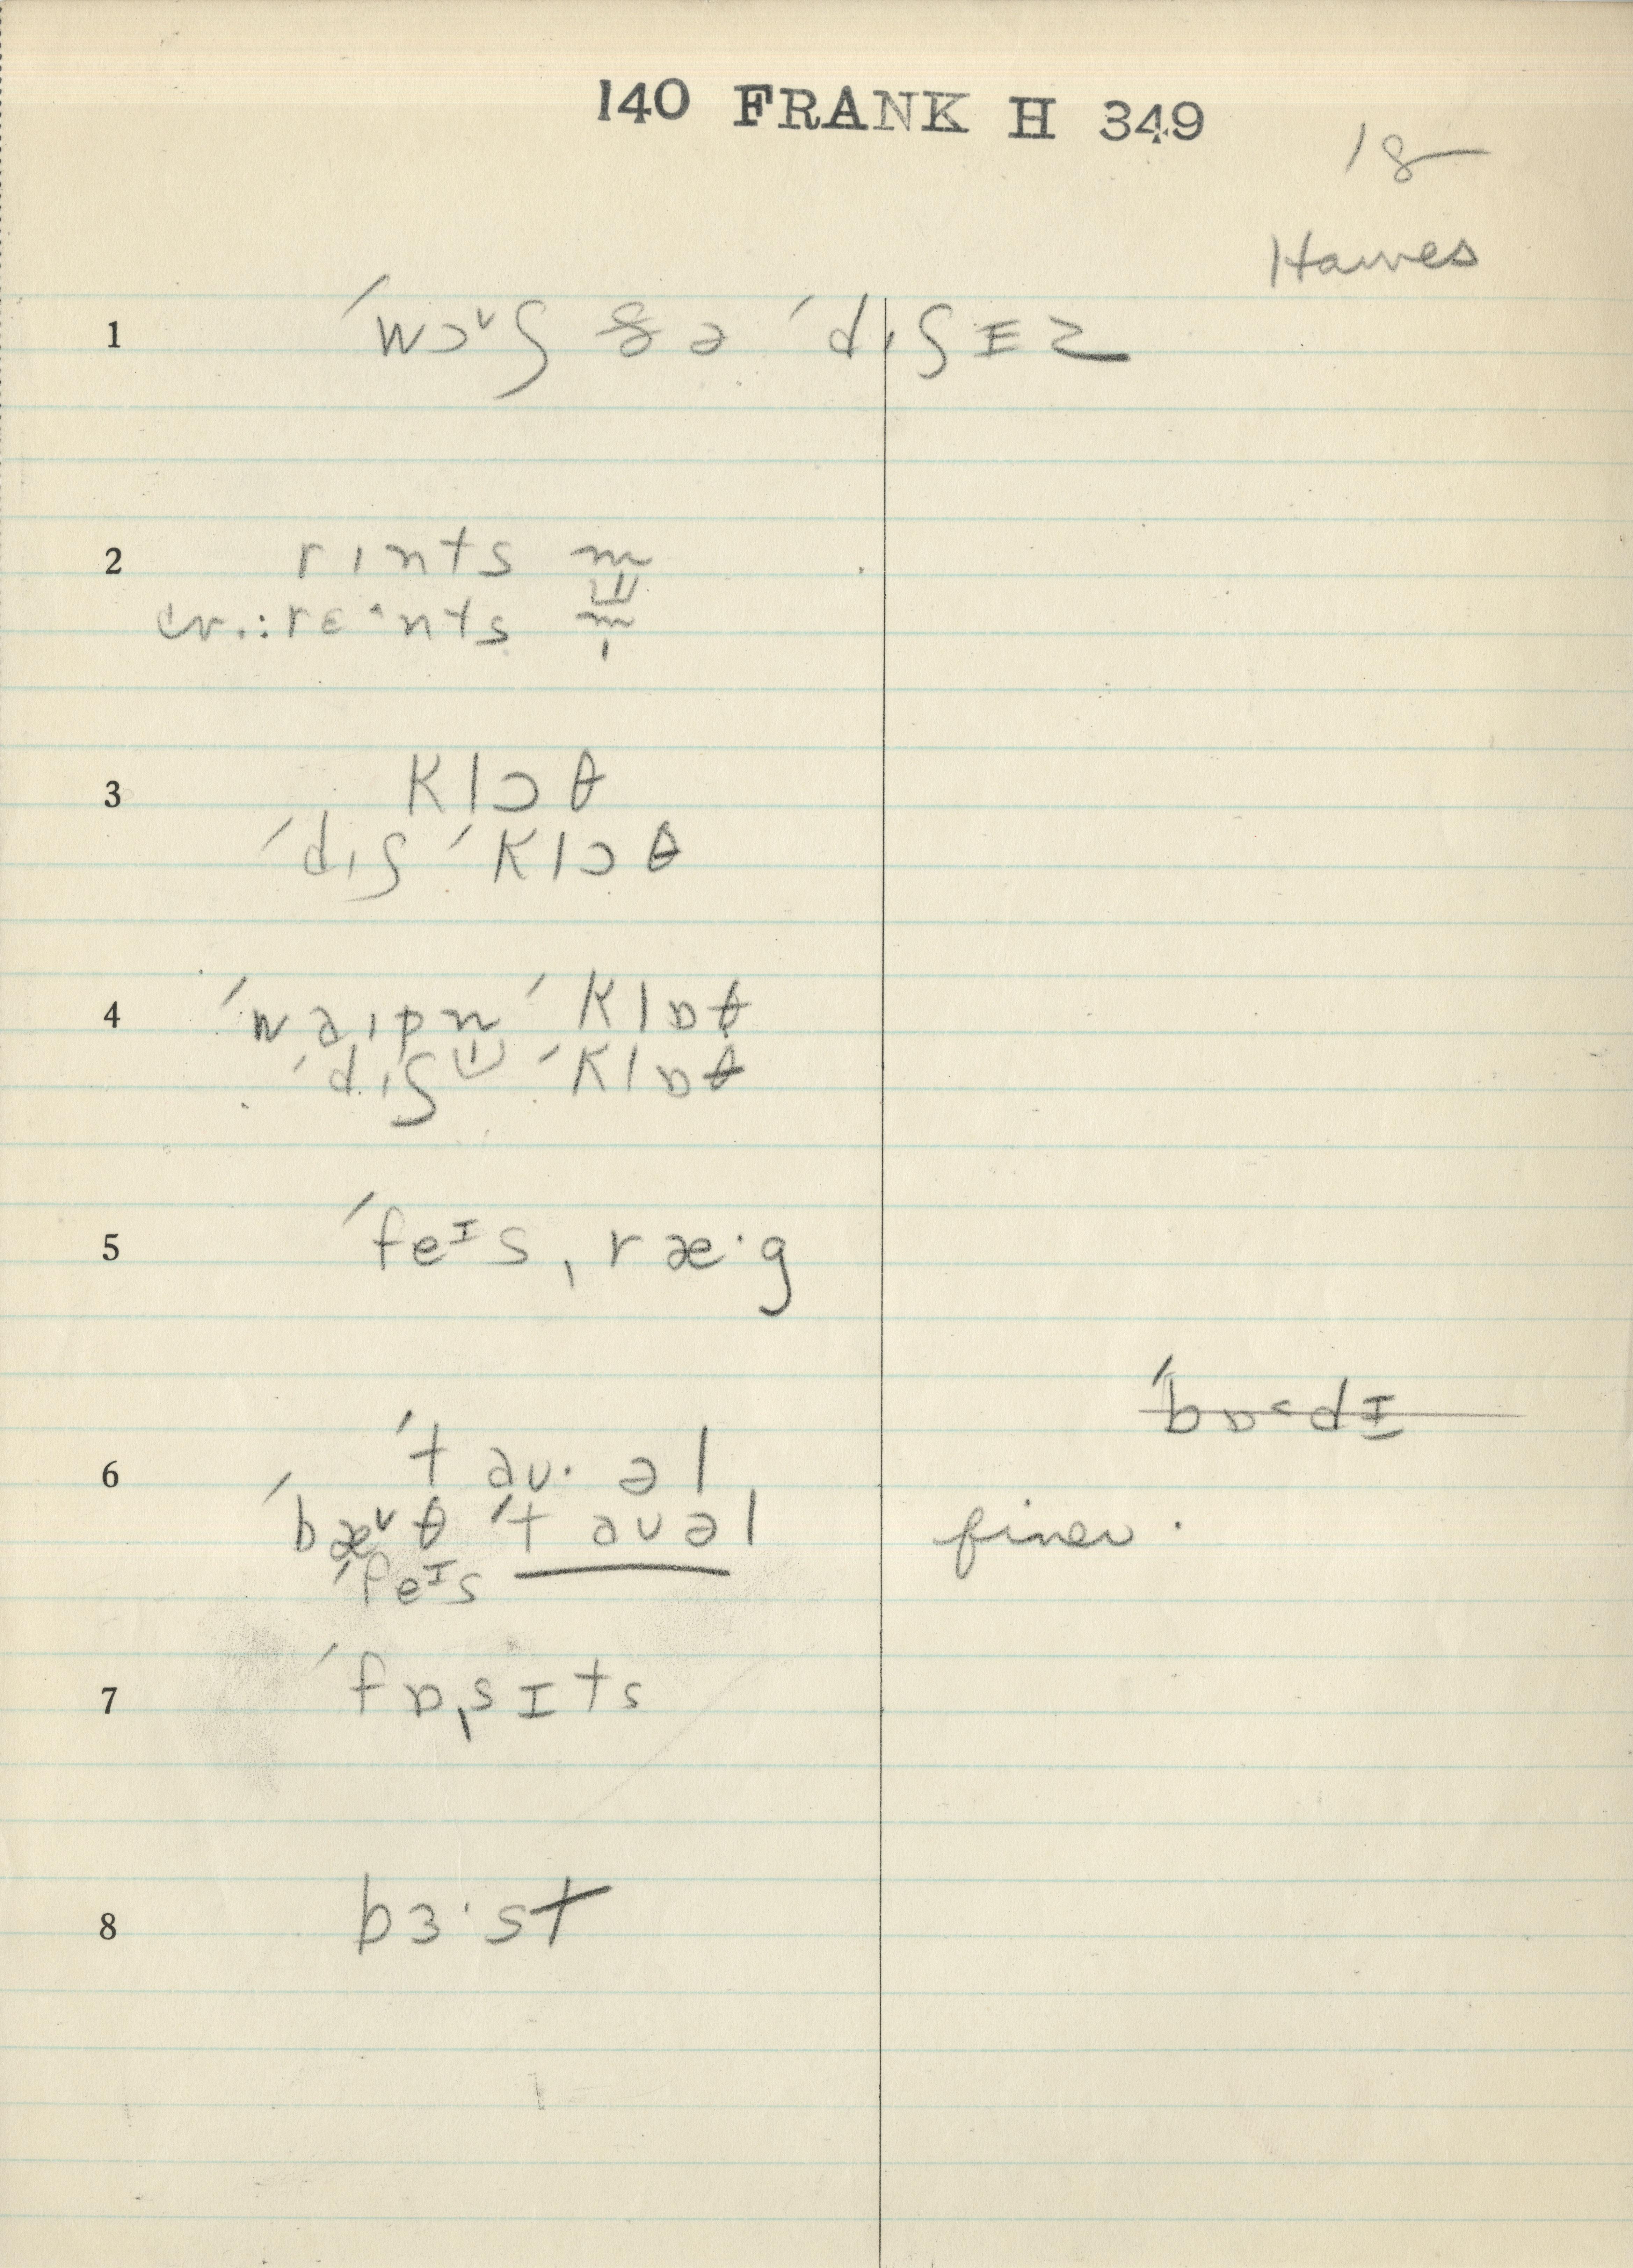 140 FRANK H 349
18
Hawes
1 ˈwɔᶹʃ ðə ˈdɪʃɪz
2 rɪnts m
cr.: rɛ˄nts m
3 klɔθ
ˈdɪʃ ˈklɔθ
4 ˈwaɪpn ˈklɒθ
ˈdɪʃ ˈklɒθ
5 ˈfeᴵsˌræ·g
ˈbɒ˂dɪ
6 ˈtaʊ·əl
ˈbæᵛθ ˈtaʊəl finer.
ˈfeᴵs
7 ˈfɒˌsɪts
8 bɜ·st